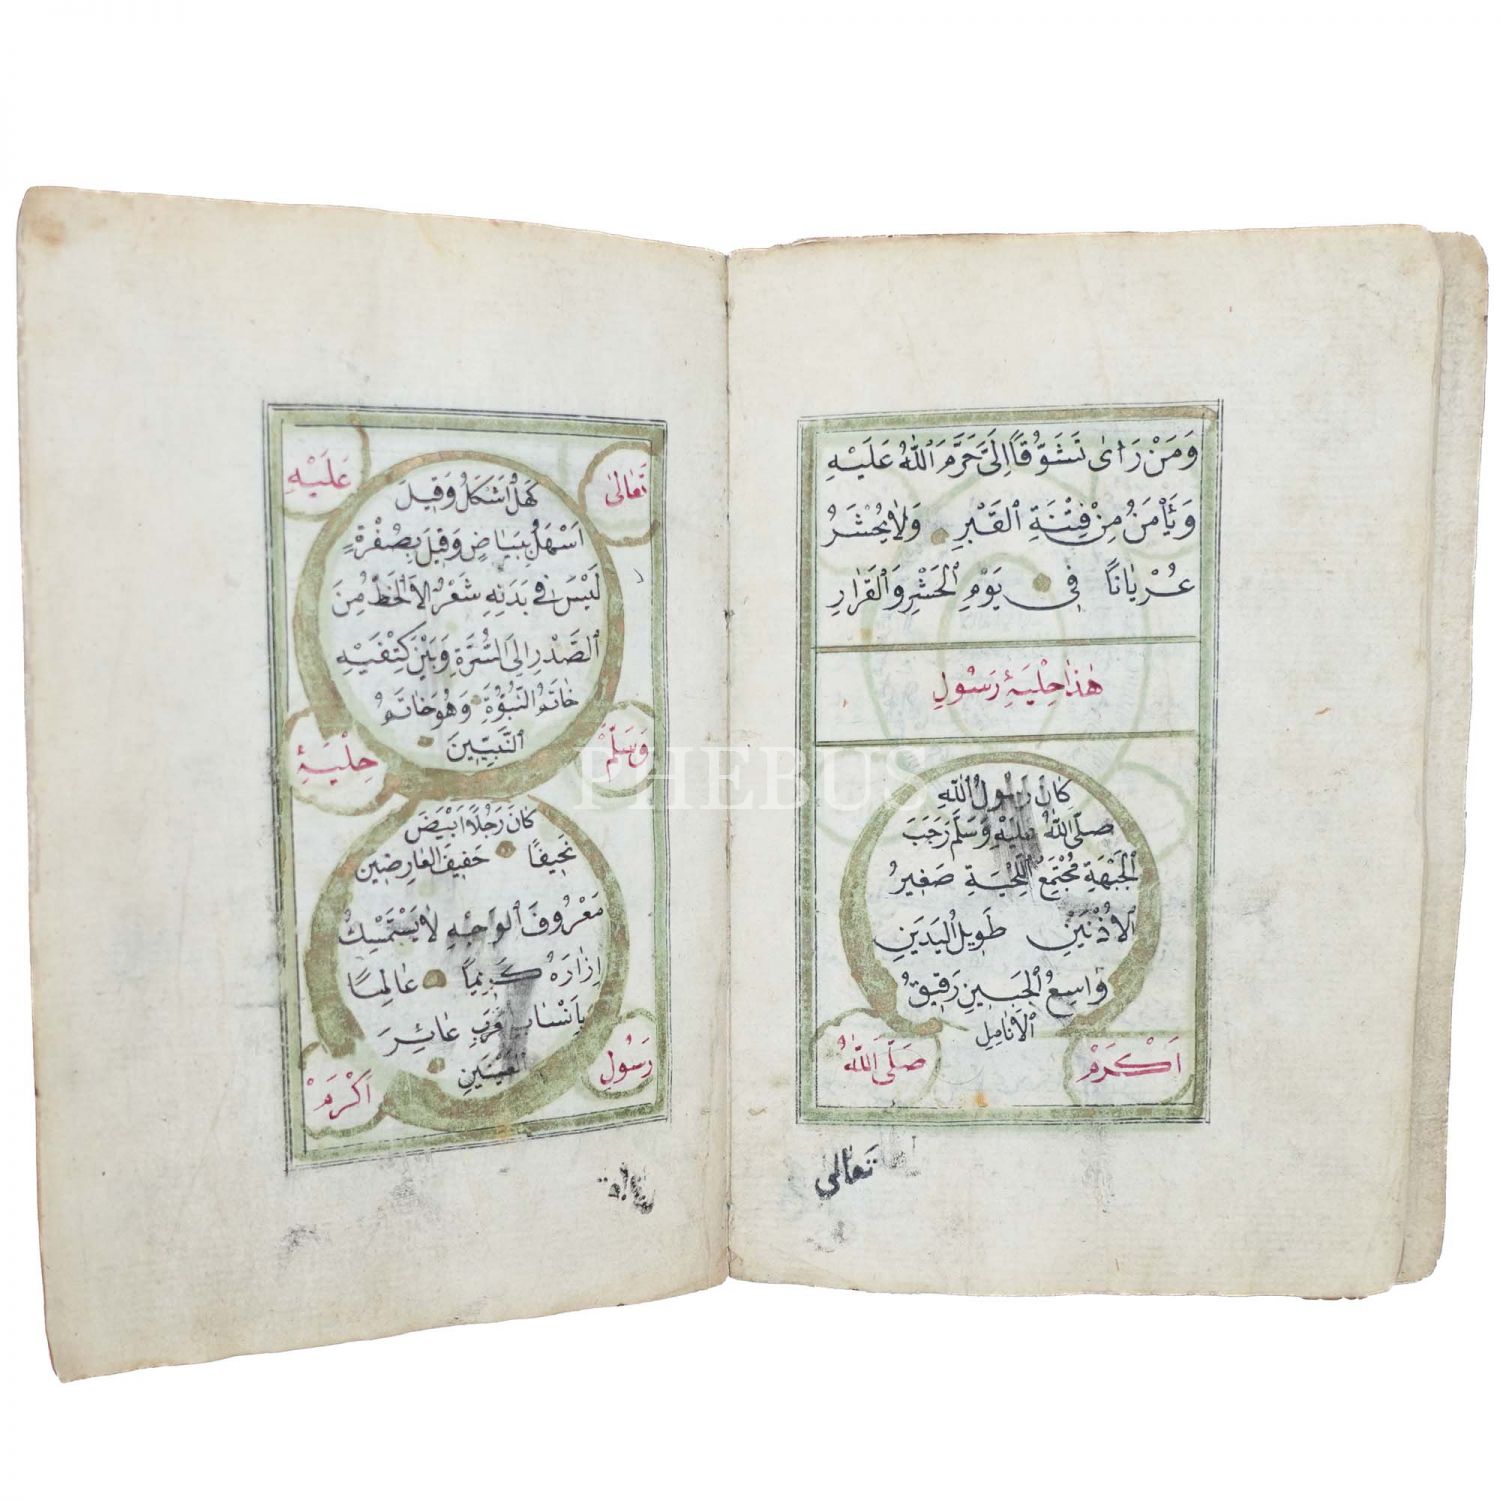 وَمَنْ رَاٰى تَشَوُّقًا اِلَىَّ حَرَّمَ اللّٰهُ عَلَيْهِ
وَيَأْمَنُ مِنْ فِتْنَةِ الْقَبْرِ وَلَا يُحْشَرُ
عُرْيَانًا فِى يَوْمِ الْحَشْرِ وَالْقَرَارِ
هٰذَا حِلْيَةُ رَسُولِ
كَانَ رَسُولُ اللّٰهِ
صَلَّى اللّٰهُ عَلَيْهِ وَسَلَّمَ رَحَبَ
الْجَبْهَةِ مُجْتَمِعُ اللِّحْيَةِ صَغِيرُ
الْاُذْنَيْنِ طَوِيلُ الْيَدَيْنِ
وَاسِعُ الْجَبِينِ رَقِيقُ
الْاَنَامِلِ
اَكْرَمْ
صَلَّى اللّٰهُ
تَعَالٰى
تَعَالٰى
عَلَيْهِ
كَهْلُ اَشْكَلُ وَقِيلَ
اَسْهَلُ بِبَيَاضٍ وَقِيلَ بِصُفْرَةٍ
لَيْسَ فِى بَدَنِهِ شَعْرٌ اِلَّا الْخَطَّ مِنَ
الصَّدْرِ اِلَى السُّرَّةِ وَبَيْنَ كَتِفَيْهِ
خَاتَمُ النُّبُوَّةِ وَهُوَ خَاتَمُ
النَّبِيِّينَ
وَسَلَّمْ
حِلْيَةُ
كَانَ رَجُلًا اَبْيَضَ
نَحِيفًا خَفِيفَ الْعَارِضَيْنِ
مَعْرُوفَ الْوَجْهِ لَا يَسْتَمْسِكُ
اِزَارَهُ كَرِيمًا عَالِمًا
بِاَنْسَابِ عَرَبِ غَائِرَ
الْعَيْنَيْنِ
رَسُولِ
اَكْرَمْ
PHEBUS